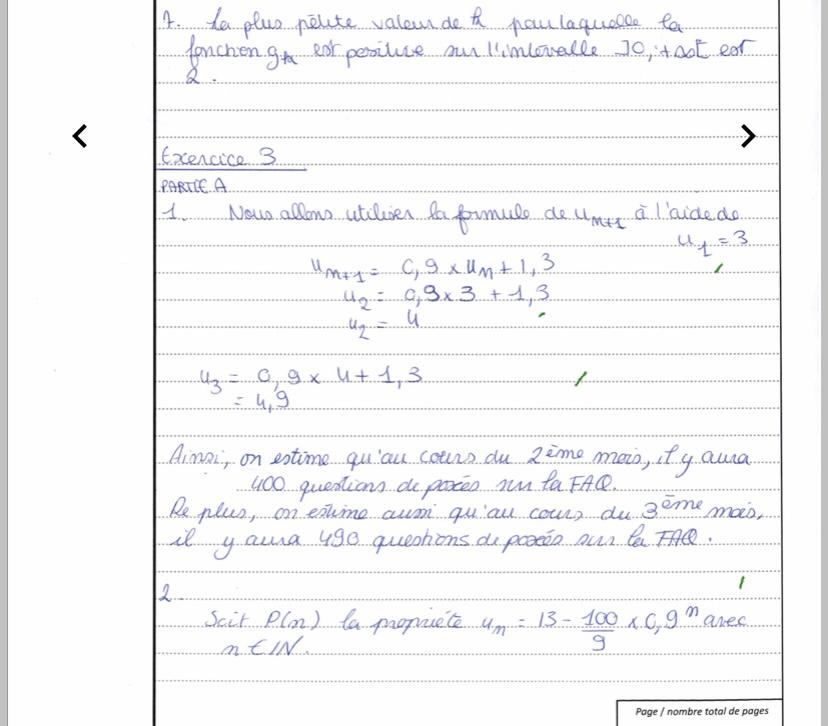 7. La plus petite valeur de k pour laquelle la
fonction gk est positive sur l'intervalle ]0, +∞[ est
2.
Exercice 3
PARTIE A
1. Nous allons utiliser la formule de un+1 à l'aide de
u1 = 3
un+1 = 0,9 × un + 1,3
u2 = 0,9 × 3 + 1,3
u2 = 4
u3 = 0,9 × 4 + 1,3
= 4,9
Ainsi, on estime qu'au cours du 2ème mois, il y aura
400 questions de posés sur la FAQ.
De plus, on estime aussi qu'au cours du 3ème mois,
il y aura 490 questions de posés sur la FAQ.
2.
Soit P(n) la propriété un = 13 - 100/9 × 0,9^n avec
n ∈ IN.
Page / nombre total de pages